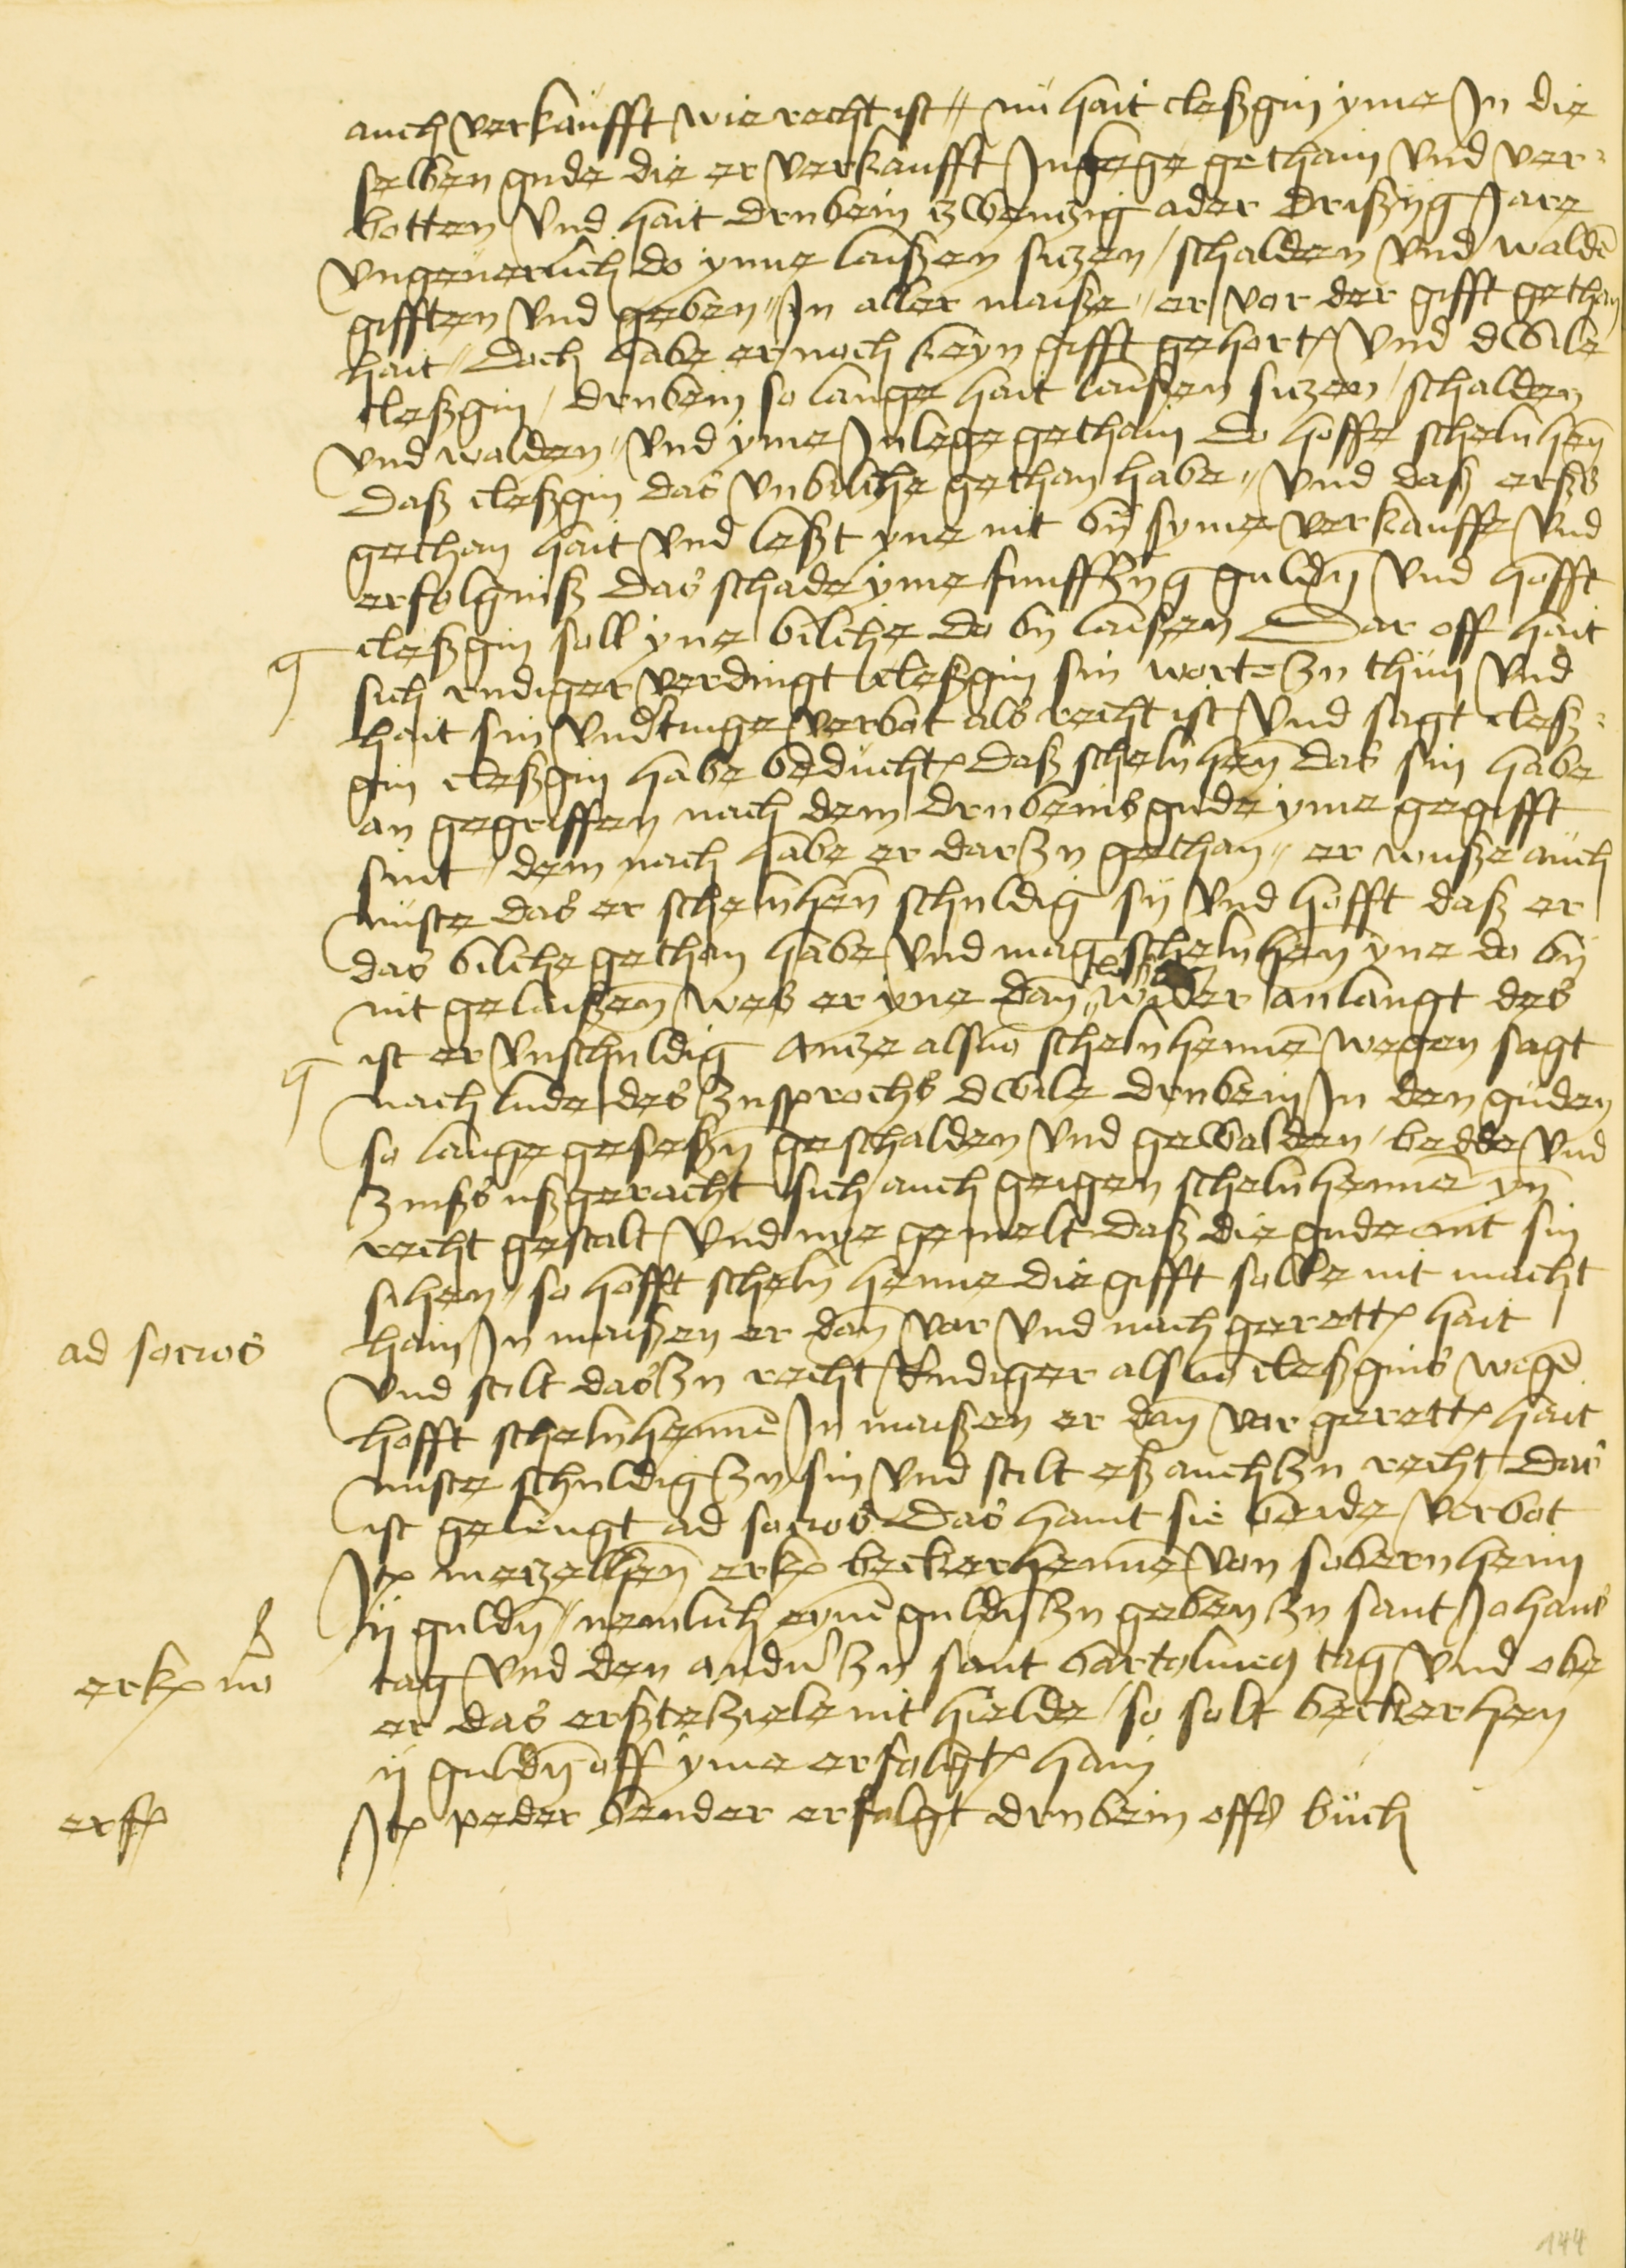 auch verkaufft wie recht ist // nu hait cleßgin yme Jn die
selben gude die er verkaufft Jnlege gethain vnd ver-
botten vnd hait drubein zwenzig ader drißyg Jare
vngeuerlich do ynne laißen siczen / schalden vnd walde
gifften vnd geben // Jn aller maiße // er vor der gifft gethan
hait // doch habe er noch keyn gifft gehort vnd dwile
cleßgin / drubein so lange hait laißen siczen / schalden
vnd walden // vnd yme Jnlege gethain do hoffe scheln hen
daß cleßgin das vnbilche gethan habe // vnd daß erßs
gethan hait vnd leßt yne nit by syme verkauffe vnd
erfolgniß das schade yme funffzyg guldin vnd hofft
cleßgin soll yne bilche do by laißen Dar off hait
sich rudiger verdingt cleßgin sin worte zu thun vnd
hait sin vnd'tinge verbot als recht ist vnd sagt cleß-
gin cleßgin habe beducht daß scheln hen das sin habe
an gegriffen nach dem drubeins gude yme gegifft
sint / dem nach habe er dar zu gethan // er wuße auch
nuste das er scheln hen schuldig sy vnd hofft daß er
das bilche gethan habe vnd mag scheln hen yne do by
nit gelaißen wes er yne dan wider anlangt des
ist er vnschuldig Ancze als von scheln henne wegen sagt
nach lude des zusprochs dwile drubein Jn den guden
so lange geseßin geschalden vnd gewalden / bedde vnd
zinßs ußgeracht sich auch geigen scheln henne yn
recht gestalt vnd nye gemelt daß die gude nit sin
sihen // so hofft scheln henne die gifft solle nit macht
hain Jn maißen er dan vor vnd nach gerett hait
vnd stilt das zu recht Rudiger als von cleßgins wege
hofft scheln henne Jn maißen er dan vor gerett hait
nuste schuldig zu sin vnd stilt eß auch zu recht das
ad socios
ist gelengt ad socios Das haint sie beide verbot
Jt meczelhen erk beckerhenne von sobernheim
ij guldin // nemlich eyne guldin zu geben zu sant Johans
erk no
tag vnd den andn' zu sant bartolmeg tag vnd obe
er das erßte ziele nit hielde / so solt beckerhen
ij guldin off yme erfolgt hain
erff
Jt peder bender erfolgt drubein offs buch
144